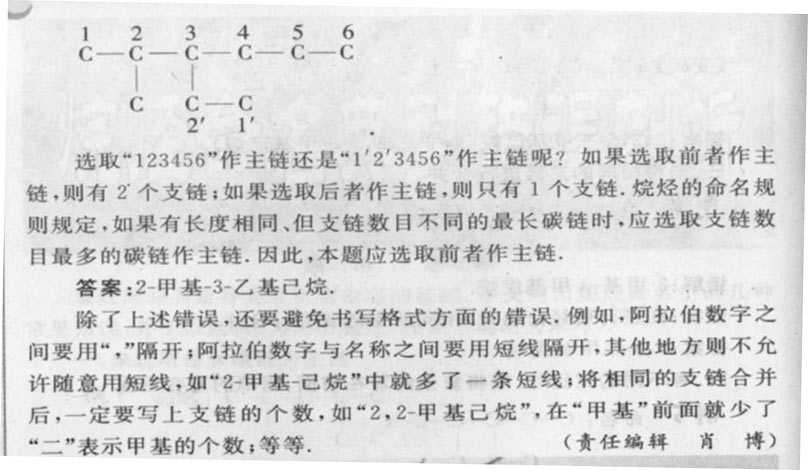 1 2 3 4 5 6
C—C—C—C—C—C
| |
C C—C
2′ 1′
选取“123456”作主链还是“1′2′3456”作主链呢? 如果选取前者作主
链,则有 2 个支链;如果选取后者作主链,则只有 1 个支链. 烷烃的命名规
则规定,如果有长度相同、但支链数目不同的最长碳链时,应选取支链数
目最多的碳链作主链. 因此,本题应选取前者作主链.
答案:2-甲基-3-乙基己烷.
除了上述错误,还要避免书写格式方面的错误,例如,阿拉伯数字之
间要用“,”隔开;阿拉伯数字与名称之间要用短线隔开,其他地方则不允
许随意用短线,如“2-甲基-己烷”中就多了一条短线;将相同的支链合并
后,一定要写上支链的个数,如“2,2-甲基己烷”,在“甲基”前面就少了
“二”表示甲基的个数;等等.
(责任编辑 肖 博)